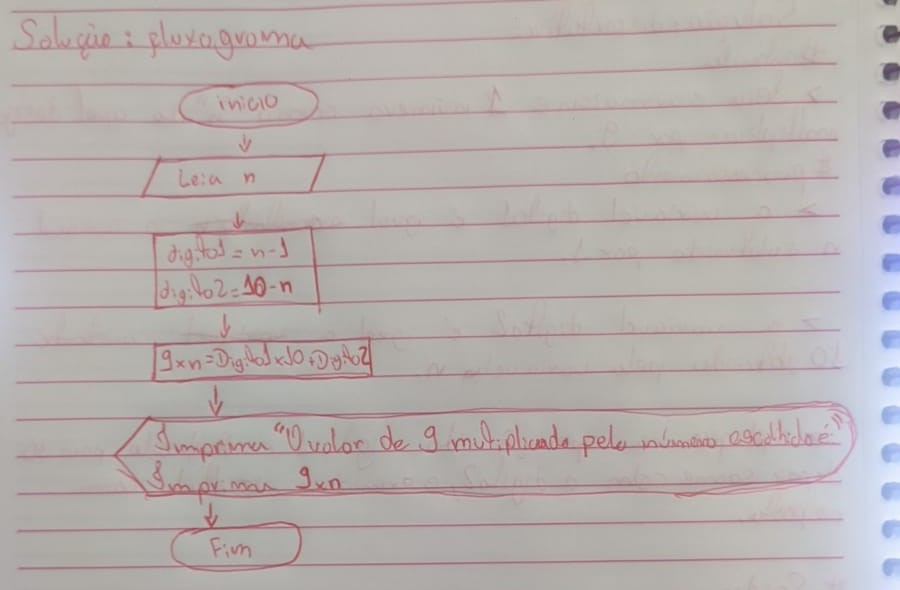 Solução: fluxograma
inicio
Leia n
digito1 = n-1
digito2 = 10-n
9xn = Digito1 x 10 + Digito2
Imprima "O valor de 9 multiplicado pelo número escolhido é:"
Imprima 9xn
Fim